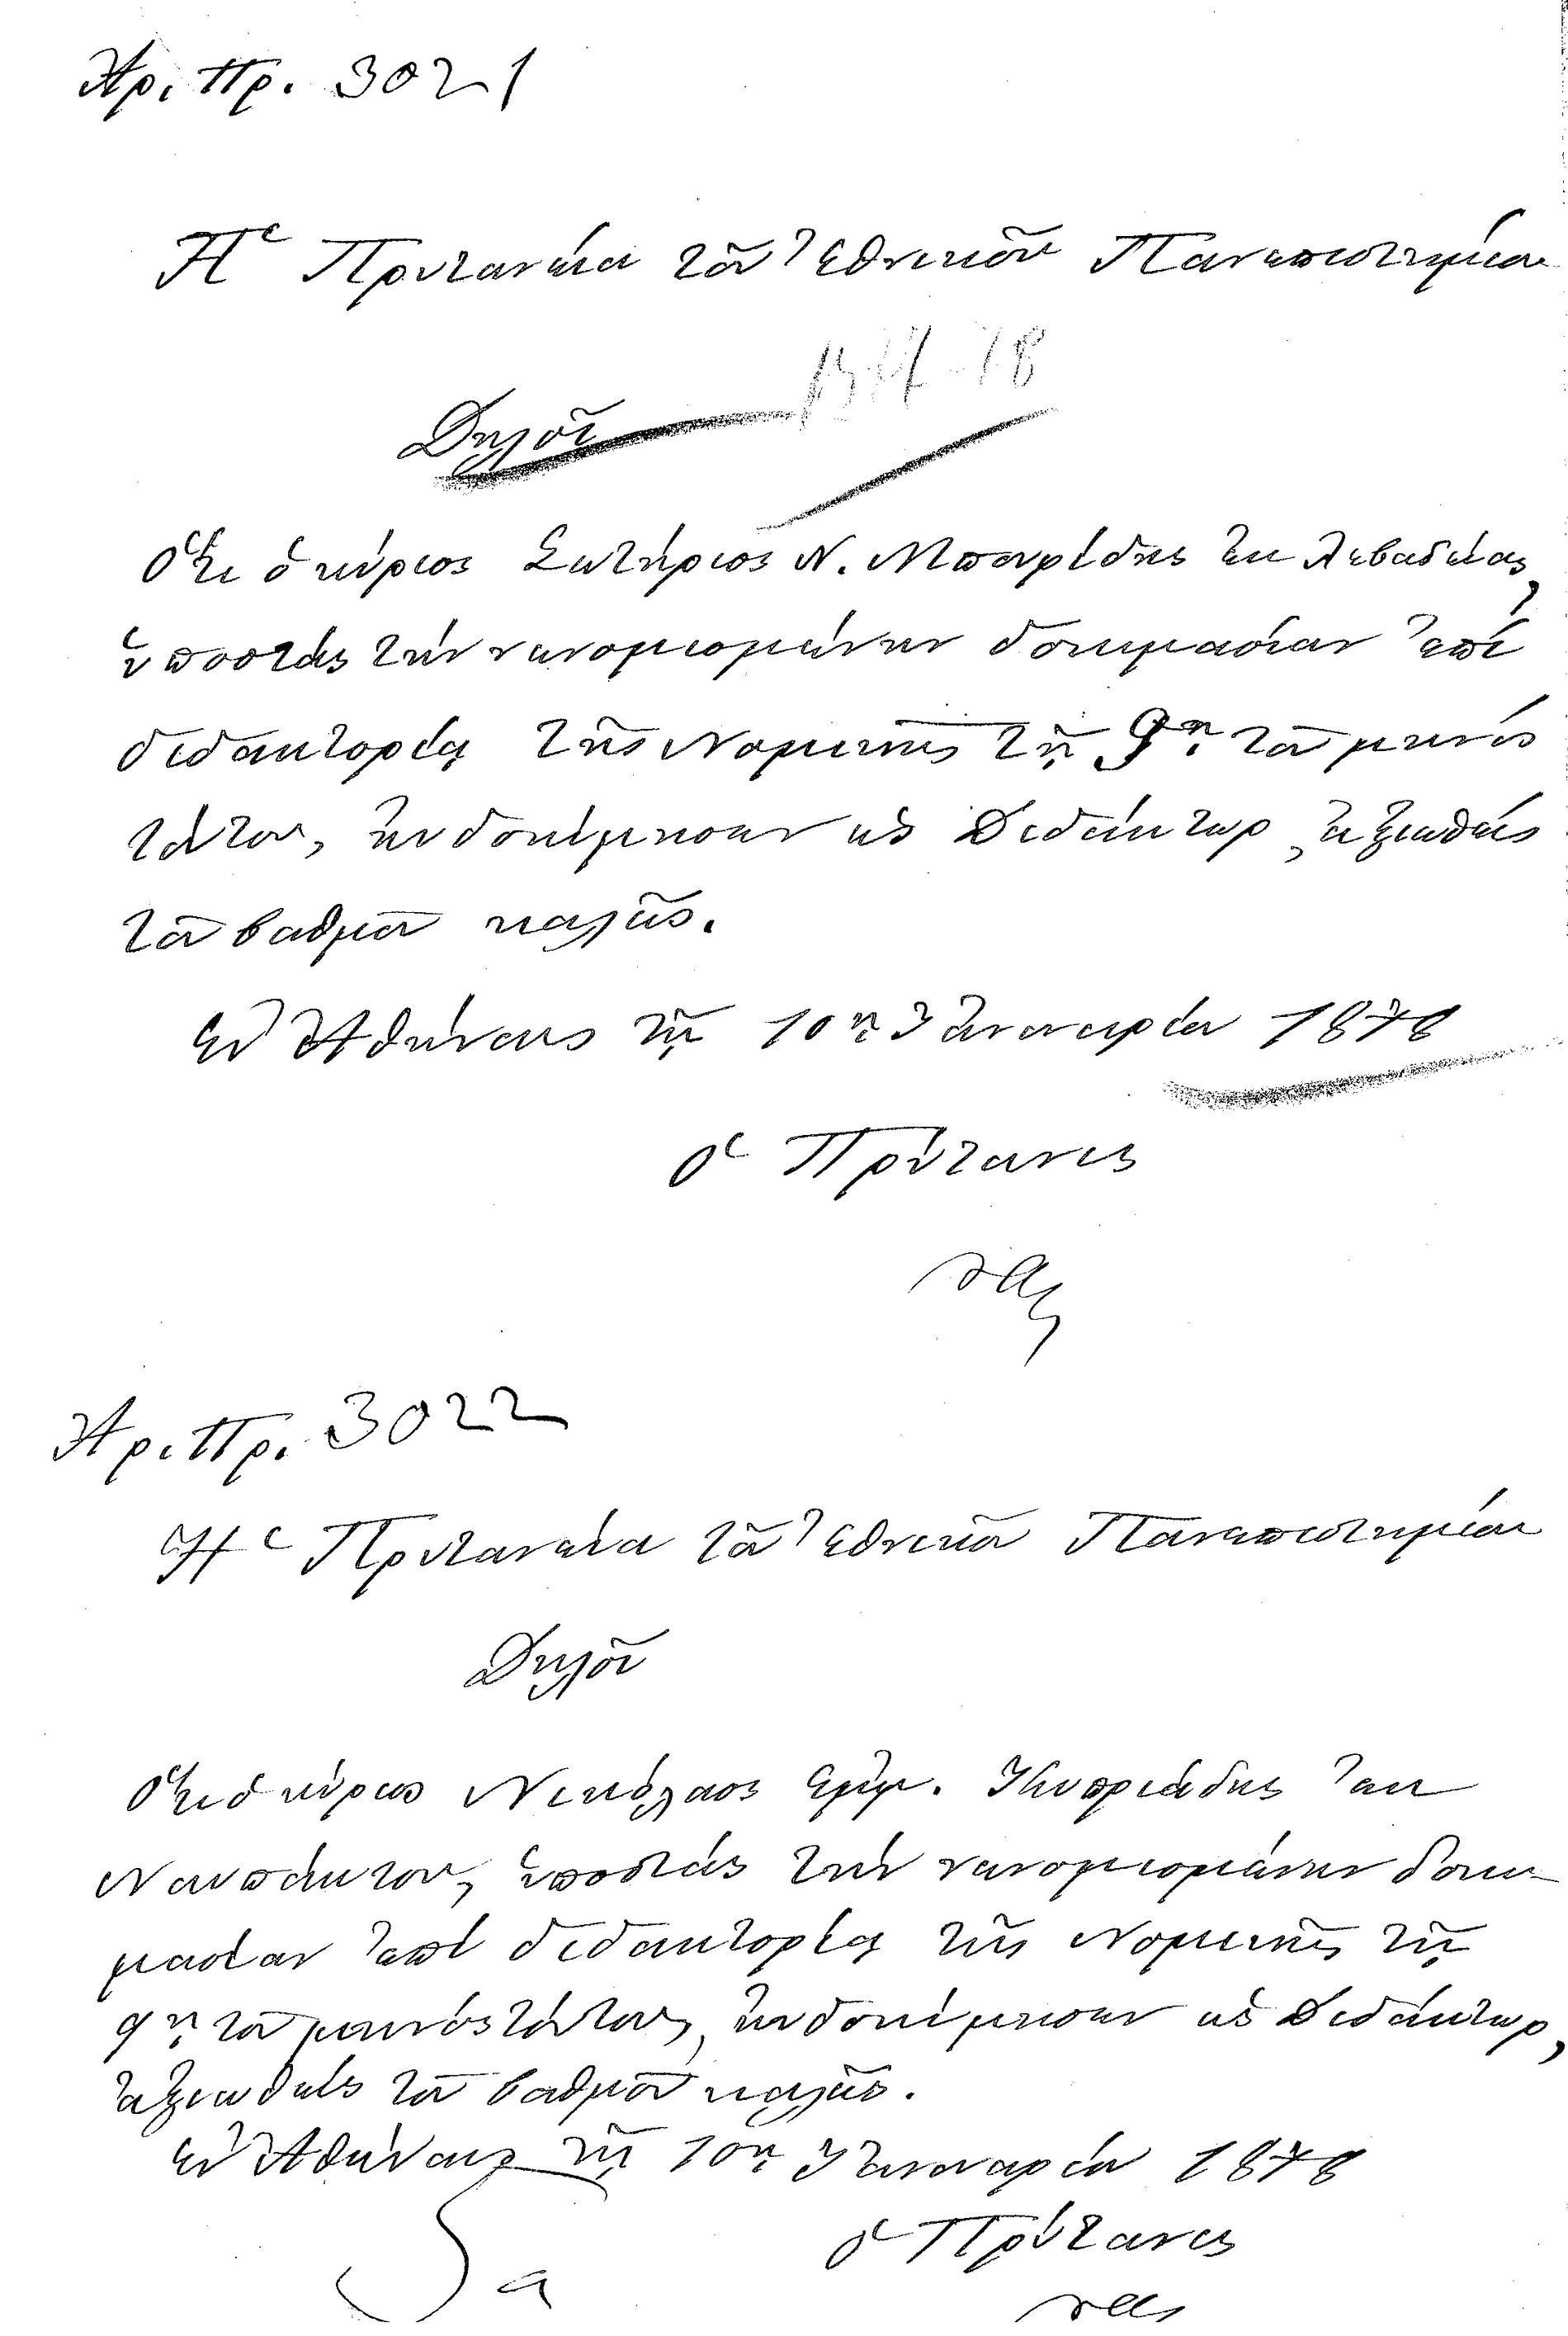 Ἀρ. Πρ. 3021
Ἡ Πρυτανεία τοῦ Ἐθνικοῦ Πανεπιστημίου
1877-78
Δηλοῖ
Ὅτι ὁ κύριος Σωτήριος Ν. ἐκ Λεβαδείας,
ὑποστάς τήν νενομισμένην δοκιμασίαν ἐπί
διδακτορίᾳ τῆς Νομικῆς τῇ 9ῃ. τοῦ μηνός
τούτου, ηὐδοκίμησεν ὡς Διδάκτωρ, ἀξιωθείς
τοῦ βαθμοῦ καλῶς.
Ἐν Ἀθήναις τῇ 10ῃ. Ἰανουαρίου 1878
Ὁ Πρύτανις
Ἀρ. Πρ. 3022
Ἡ Πρυτανεία τοῦ Ἐθνικοῦ Πανεπιστημίου
Δηλοῖ
Ὅτι ὁ κύριος Νικόλαος Ἐμμ. Κυπριάδης ἐκ
Ναυπάκτου, ὑποστάς τήν νενομισμένην δοκι-
μασίαν ἐπί διδακτορίᾳ τῆς Νομικῆς τῇ
9ῃ. τοῦ μηνός τούτου, ηὐδοκίμησεν ὡς Διδάκτωρ,
ἀξιωθείς τοῦ βαθμοῦ καλῶς.
Ἐν Ἀθήναις τῇ 10ῃ. Ἰανουαρίου 1878
Ὁ Πρύτανις